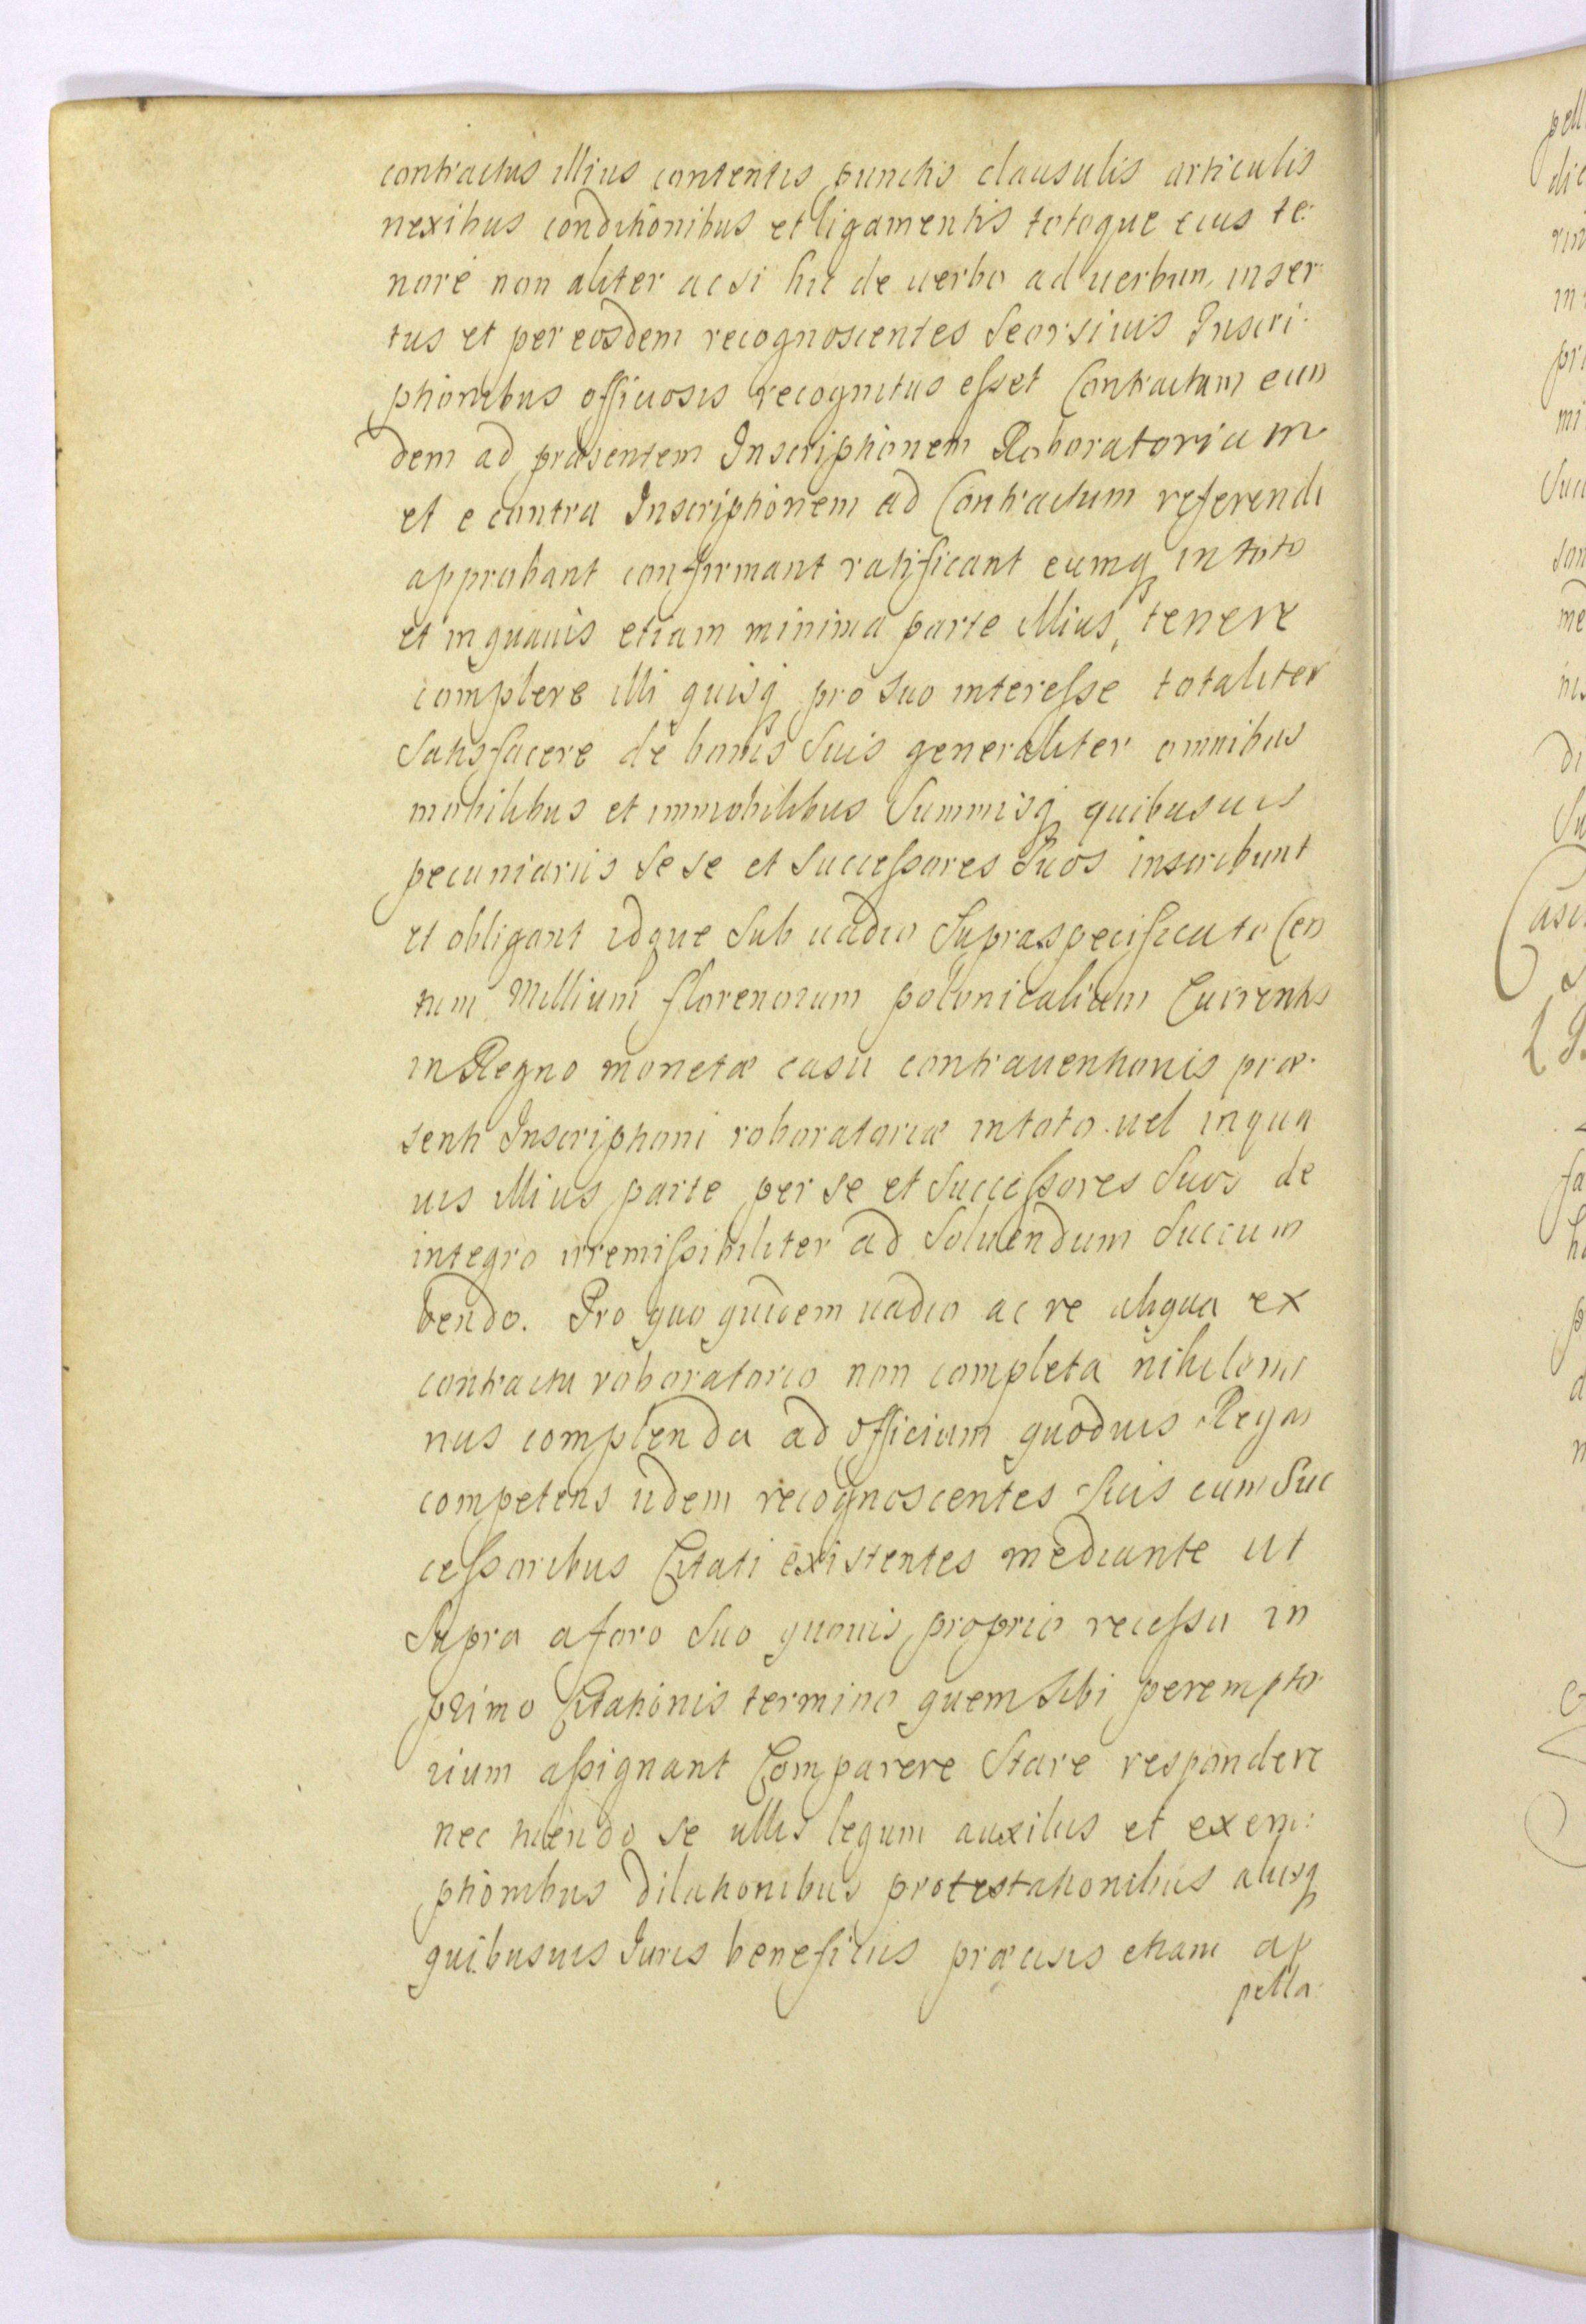 contractus illius contentis punctis clausulis articulis
nexibus conditionibus et ligamentis totoque eius te:
nore non aliter ac si hic de uerbo ad uerbum inser:
tus et per eosdem recognoscentes Seorsiuis Inscri:
ptionibus officiosis recognitus esset Contractum eun
dem ad præsentem Inscriptionem Roboratoriam
et e contra Inscriptionem ad Contractum referendi
approbant confirmant ratificant eumq in toto
et in quauis etiam minima parte illius, tenere
complere illi quisq pro suo interesse totaliter
Satisfacere de bonis Suis generaliter omnibus
mobilibus et immobilibus Summisq quibusuis
pecuniariis Se se et Successores Suos inscribunt
et obligant idque Sub uadio Supraspecificato Cen
tum Millium florenorum polonicalium Currentis
in Regno monetæ casu contrauentionis præ:
senti Inscriptioni roboratoriæ in toto uel in qua
uis illius parte per se et Successores Suos de
integro irremissibiliter ad Soluendum Succum
bendo. Pro quo quidem uadio ac re aliqua ex
contractu roboratorio non completa nihilomi
nus complenda ad officium quoduis Regni
competens iidem recognoscentes Suis cum Suc
cessoribus Citati existentes mediante ut
Supra a foro Suo quouis proprio recessu in
primo Citationis termino quem Sibi perempto:
rium assignant Comparere Stare respondere
nec tuendo se ullis legum auxiliis et exem:
ptionibus dilationibus protestationibus aliisq
quibusuis Iuris beneficiis præcisis etiam ap
pella: